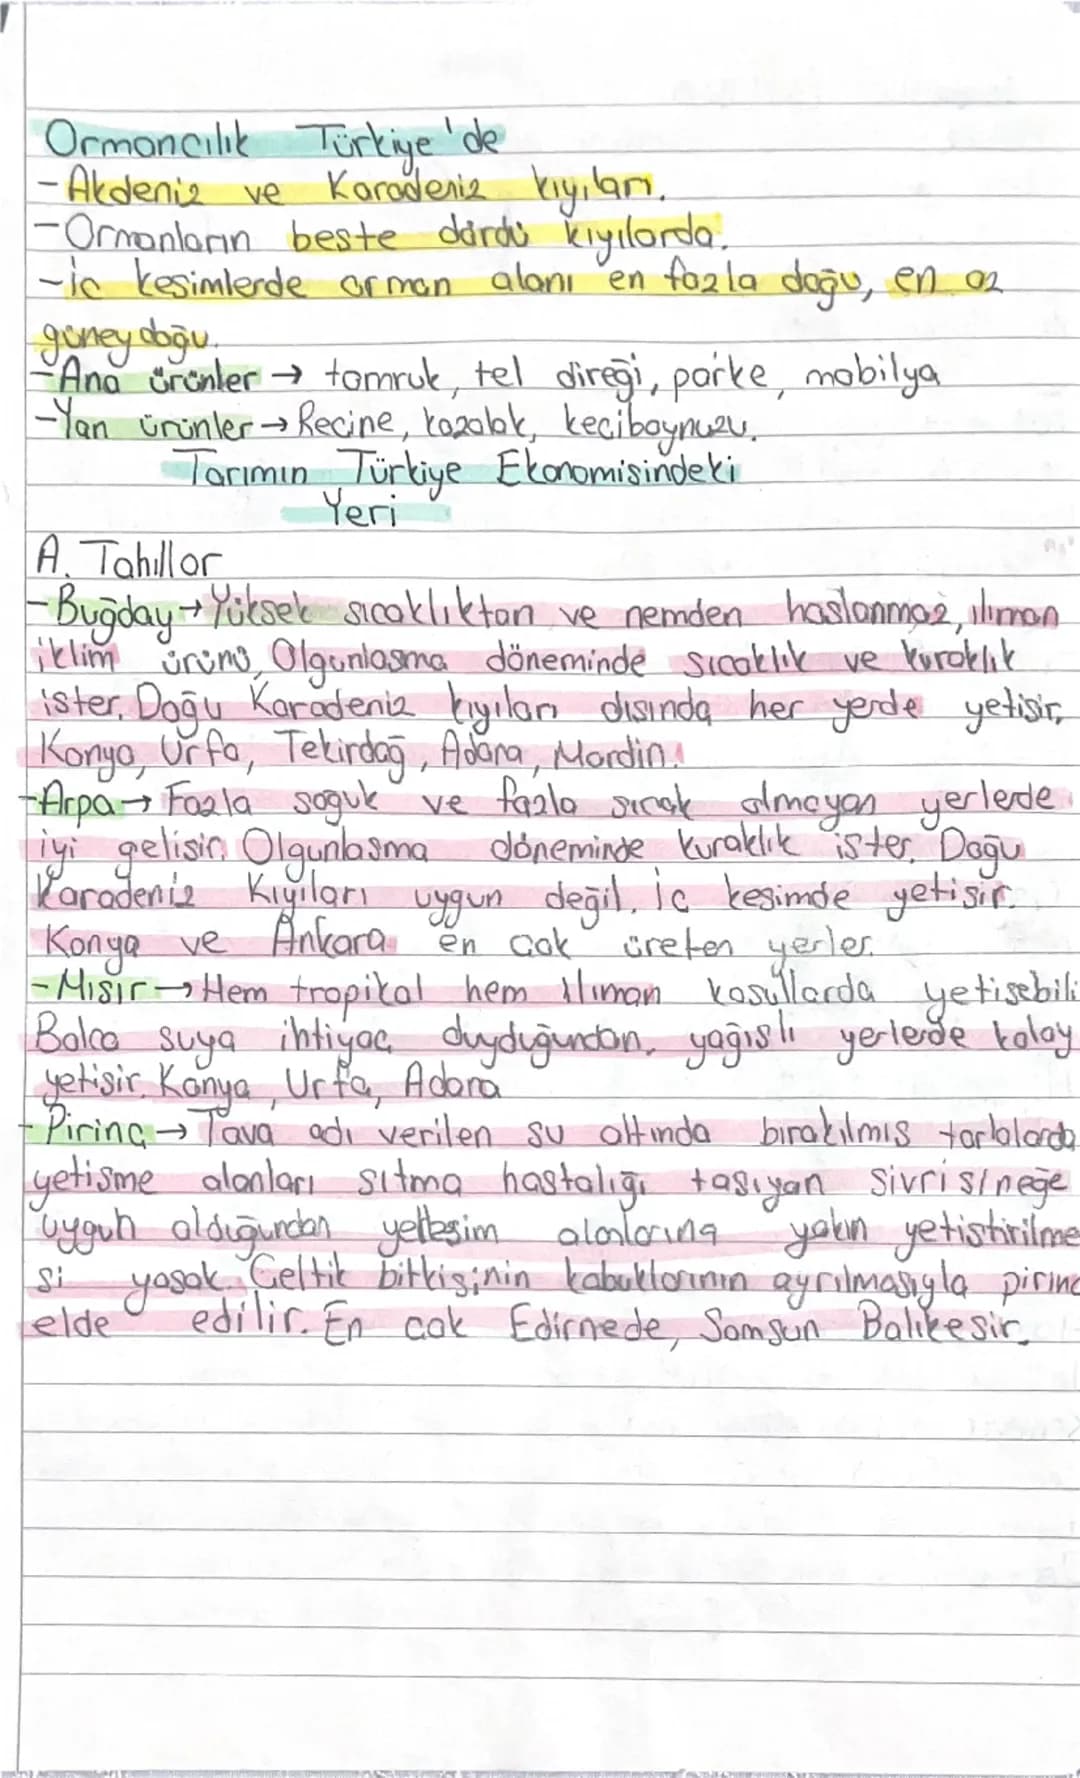 Ormancılık Türkiye'de
- Akdeniz ve Karadeniz kıyıları.
- Ormanların beste dördü kıyılarda.
- İc kesimlerde orman alanı en fazla doğu, en az
güneydoğu.
- Ana ürünler → tomruk, tel direği, parke, mobilya
- Yan ürünler → Recine, kozalak, keciboynuzu.
Tarımın Türkiye Ekonomisindeki
Yeri
A. Tahıllar
- Buğday → Yüksek sıcaklıktan ve nemden hoslanmaz, ılıman
iklim ürünü, Olgunlasma döneminde sıcaklık ve kuraklık
ister. Doğu Karadeniz kıyıları dısında her yerde yetisir.
Konya, Urfa, Tekirdağ, Adana, Mardin.
- Arpa → Fazla soguk ve fazla sıcak olmayan yerlerde
iyi gelisir. Olgunlasma döneminde kuraklık ister. Doğu
Karadeniz Kıyıları uygun değil. İc kesimde yetisir.
Konya ve Ankara en cok üreten yerler.
- Mısır → Hem tropikal hem ılıman kosullarda yetisebili
Bolca suya ihtiyac duyduğundan, yağıslı yerlerde kolay
yetisir. Konya, Urfa, Adana
- Pirinc → Tava adı verilen su altında bırakılmıs tarlalarda
yetisme alanları sıtma hastalığı tasıyan sivrisineğe
uygun olduğundan yerlesim alanlarına yakın yetistirilme
si yasak. Celtik bitkisinin kabuklarının ayrılmasıyla pirinc
elde edilir. En cok Edirnede, Samsun Balıkesir.